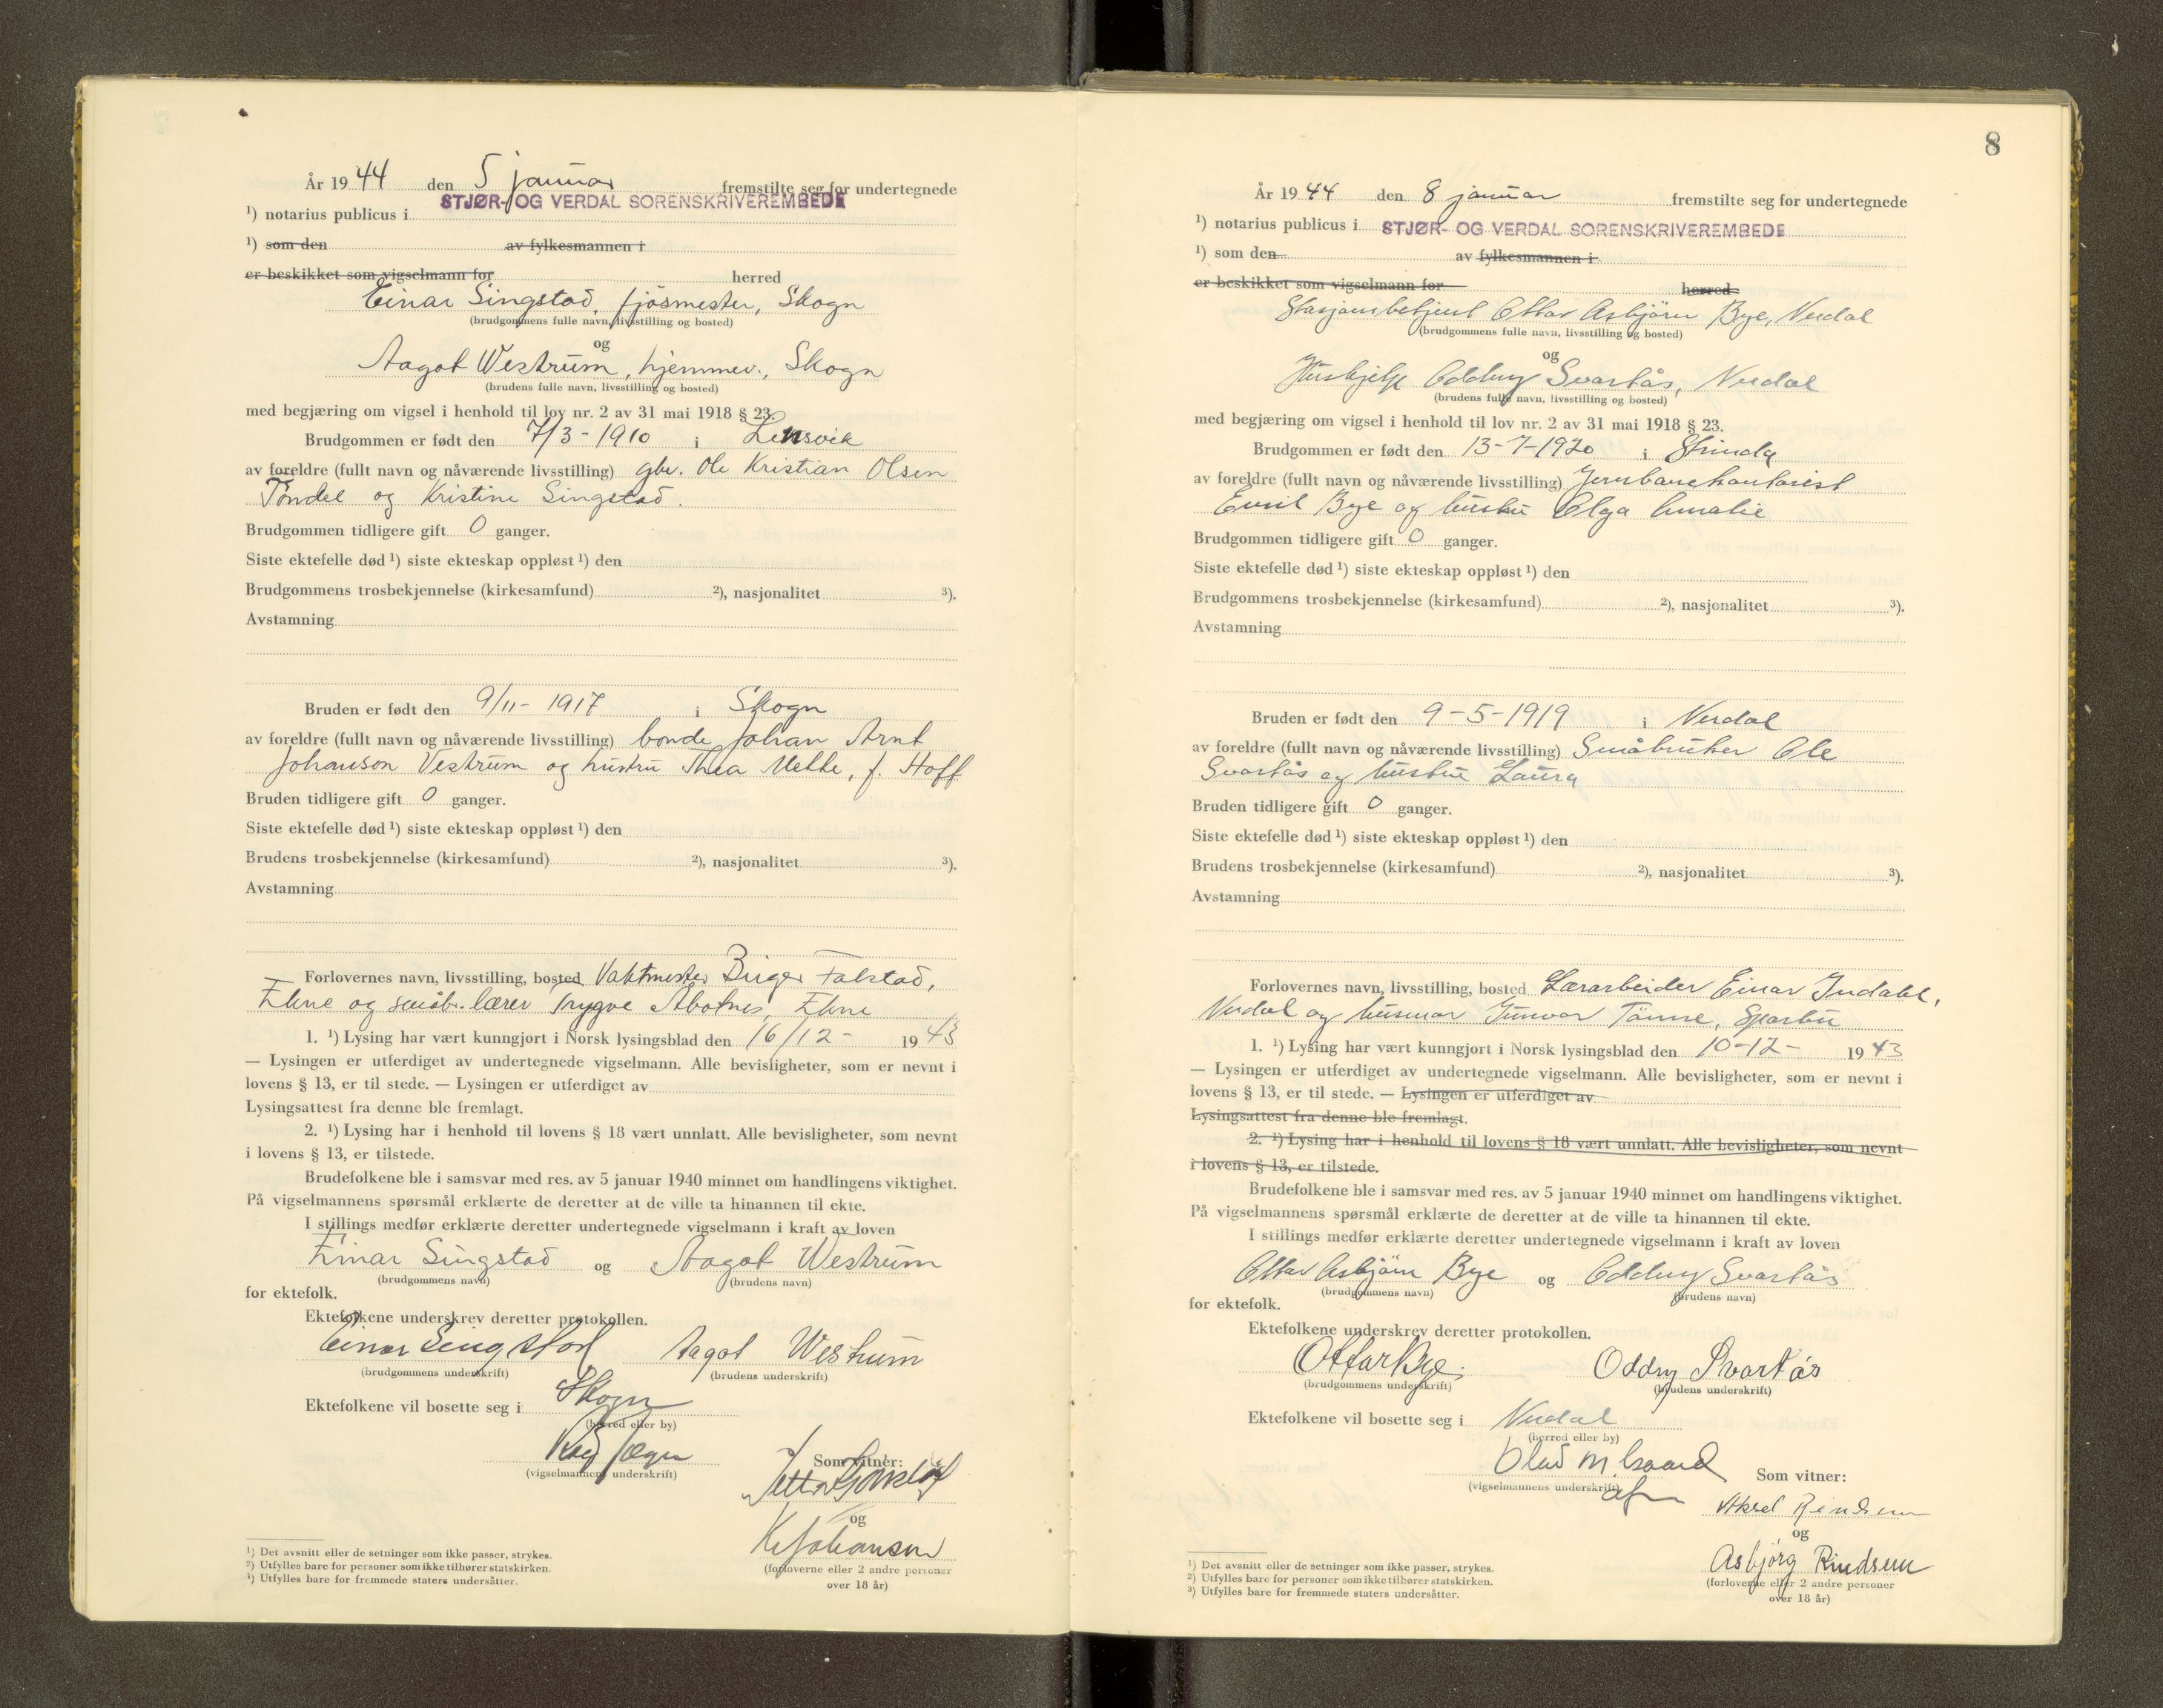 År 1944 den 5 januar fremstilte seg for undertegnede
¹) notarius publicus i STJØR- OG VERDAL SORENSKRIVEREMBEDE
¹) som den av fylkesmannen i
er beskikket som vigselmann for herred
Einar Singstad, fjøsmester, Skogn
(brudgommens fulle navn, livsstilling og bosted)
og
Aagot Westrum, hjemmev., Skogn
(brudens fulle navn, livsstilling og bosted)
med begjæring om vigsel i henhold til lov nr. 2 av 31 mai 1918 § 23.
Brudgommen er født den 7/3-1910 i Lensvik
av foreldre (fullt navn og nåværende livsstilling) gbr. Ole Kristian Olsen
Tøndel og Kristine Singstad.
Brudgommen tidligere gift 0 ganger.
Siste ektefelle død ¹) siste ekteskap oppløst ¹) den
Brudgommens trosbekjennelse (kirkesamfund) ²), nasjonalitet ³).
Avstamning
Bruden er født den 9/11-1917 i Skogn
av foreldre (fullt navn og nåværende livsstilling) bonde Johan Arnt
Johanson Vestrum og hustru Thea Mette, f. Hoff
Bruden tidligere gift 0 ganger.
Siste ektefelle død ¹) siste ekteskap oppløst ¹) den
Brudens trosbekjennelse (kirkesamfund) ²), nasjonalitet ³).
Avstamning
Forlovernes navn, livsstilling, bosted Vaktmester Birger Falstad,
Ekne og småb. lærer Trygve Åbotnes, Ekne
1. ¹) Lysing har vært kunngjort i Norsk lysingsblad den 16/12- 1943
— Lysingen er utferdiget av undertegnede vigselmann. Alle bevisligheter, som er nevnt i
lovens § 13, er til stede. — Lysingen er utferdiget av
Lysingsattest fra denne ble fremlagt.
2. ¹) Lysing har i henhold til lovens § 18 vært unnlatt. Alle bevisligheter, som nevnt
i lovens § 13, er tilstede.
Brudefolkene ble i samsvar med res. av 5 januar 1940 minnet om handlingens viktighet.
På vigselmannens spørsmål erklærte de deretter at de ville ta hinannen til ekte.
I stillings medfør erklærte deretter undertegnede vigselmann i kraft av loven
Einar Singstad og Aagot Westrum
(brudgommens navn) (brudens navn)
for ektefolk.
Ektefolkene underskrev deretter protokollen.
Einar Singstad Aagot Westrum
(brudgommens underskrift) (brudens underskrift)
Ektefolkene vil bosette seg i Skogn
(herred eller by)
(vigselmannens underskrift)
Som vitner:
og
K Johansen
(forloverne eller 2 andre personer
over 18 år)
¹) Det avsnitt eller de setninger som ikke passer, strykes.
²) Utfylles bare for personer som ikke tilhører statskirken.
³) Utfylles bare for fremmede staters undersåtter.
8
År 1944 den 8 januar fremstilte seg for undertegnede
¹) notarius publicus i STJØR- OG VERDAL SORENSKRIVEREMBEDE
¹) som den av fylkesmannen i
er beskikket som vigselmann for herred
Stasjonsbetjent Ottar Asbjørn Bye, Verdal
(brudgommens fulle navn, livsstilling og bosted)
og
Hushjelp Oddny Svartås, Verdal
(brudens fulle navn, livsstilling og bosted)
med begjæring om vigsel i henhold til lov nr. 2 av 31 mai 1918 § 23.
Brudgommen er født den 13-7-1920 i Strinda
av foreldre (fullt navn og nåværende livsstilling) Jernbanekontorist
Emil Bye og hustru Olga Amalie
Brudgommen tidligere gift 0 ganger.
Siste ektefelle død ¹) siste ekteskap oppløst ¹) den
Brudgommens trosbekjennelse (kirkesamfund) ²), nasjonalitet ³).
Avstamning
Bruden er født den 9-5-1919 i Verdal
av foreldre (fullt navn og nåværende livsstilling) Småbruker Ole
Svartås og hustru Laura
Bruden tidligere gift 0 ganger.
Siste ektefelle død ¹) siste ekteskap oppløst ¹) den
Brudens trosbekjennelse (kirkesamfund) ²), nasjonalitet ³).
Avstamning
Forlovernes navn, livsstilling, bosted Lærarbeider Einar Indahl,
Verdal og husmor Gunvor Tønne, Sparbu
1. ¹) Lysing har vært kunngjort i Norsk lysingsblad den 10-12- 1943
— Lysingen er utferdiget av undertegnede vigselmann. Alle bevisligheter, som er nevnt i
lovens § 13, er til stede. — Lysingen er utferdiget av
Lysingsattest fra denne ble fremlagt.
2. ¹) Lysing har i henhold til lovens § 18 vært unnlatt. Alle bevisligheter, som nevnt
i lovens § 13, er tilstede.
Brudefolkene ble i samsvar med res. av 5 januar 1940 minnet om handlingens viktighet.
På vigselmannens spørsmål erklærte de deretter at de ville ta hinannen til ekte.
I stillings medfør erklærte deretter undertegnede vigselmann i kraft av loven
Ottar Asbjørn Bye og Oddny Svartås
(brudgommens navn) (brudens navn)
for ektefolk.
Ektefolkene underskrev deretter protokollen.
Ottar Bye. Oddny Svartås
(brudgommens underskrift) (brudens underskrift)
Ektefolkene vil bosette seg i Verdal
(herred eller by)
Olav M.
(vigselmannens underskrift)
Som vitner:
Aksel Rindsem
og
Asbjørg Rindsem
(forloverne eller 2 andre personer
over 18 år)
¹) Det avsnitt eller de setninger som ikke passer, strykes.
²) Utfylles bare for personer som ikke tilhører statskirken.
³) Utfylles bare for fremmede staters undersåtter.